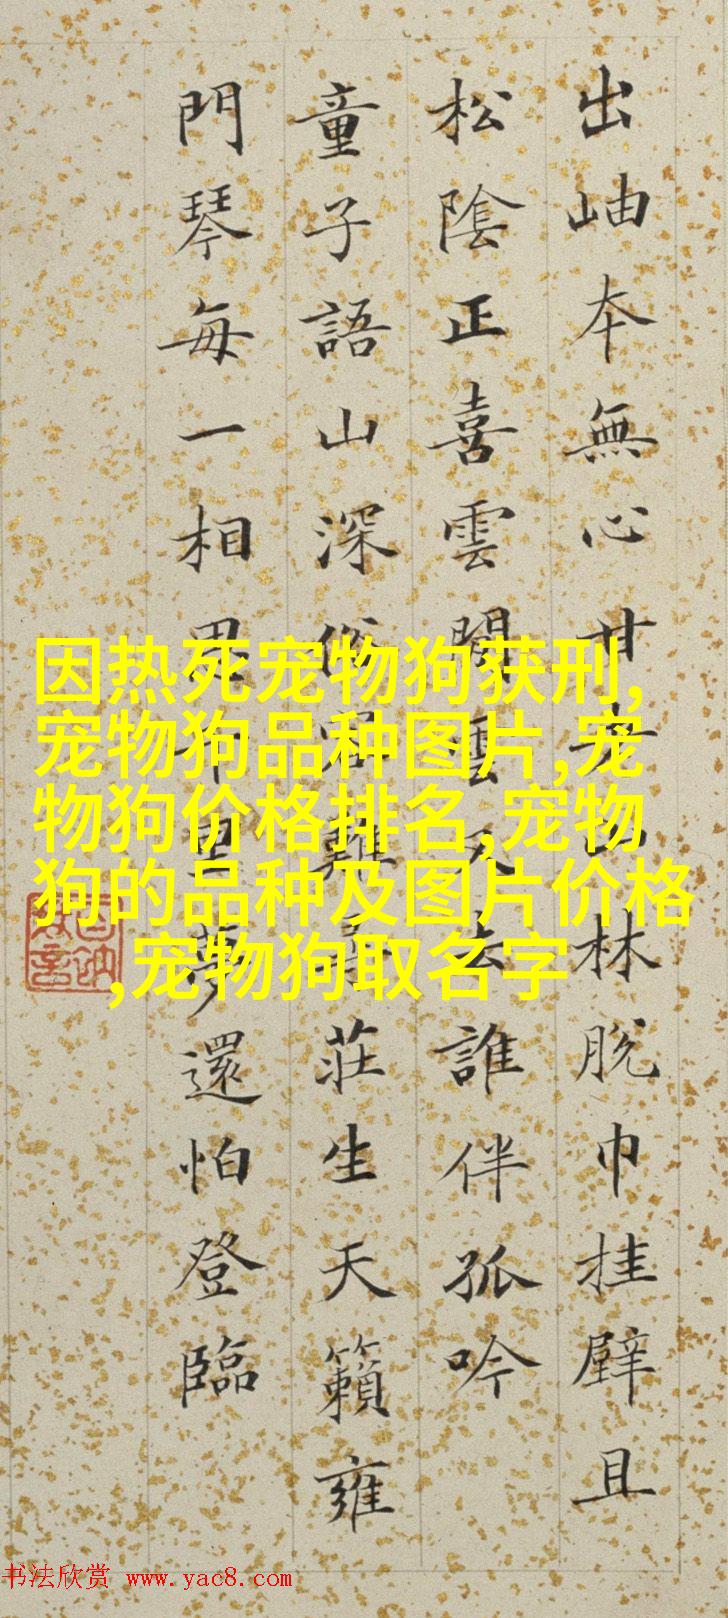 出岫本無心甘老山林脫巾挂壁且
松陰正喜雲閒雲又去誰伴孤吟
童子語山深俗客難尋莊生天籟雍
門琴每一相思千里夢還怕登臨
因热死宠物狗获刑,
宠物狗品种图片,宠
物狗价格排名,宠物
狗的品种及图片价格
,宠物狗取名字
书法欣赏 www.yac8.com